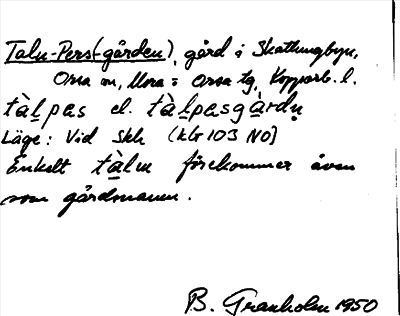 Talu-Pers(-gården), gård i Skattungbyn,
Orsa sn, Mora o Orsa tg, Kopparb. l.
tàl̠pas el. tàl̠pa̠sgàrdu̥
Läge: Vid Skh (kG 103 NO)
Enkelt tàlu förekommer även
som gårdsnamn.
B. Granholm 1950